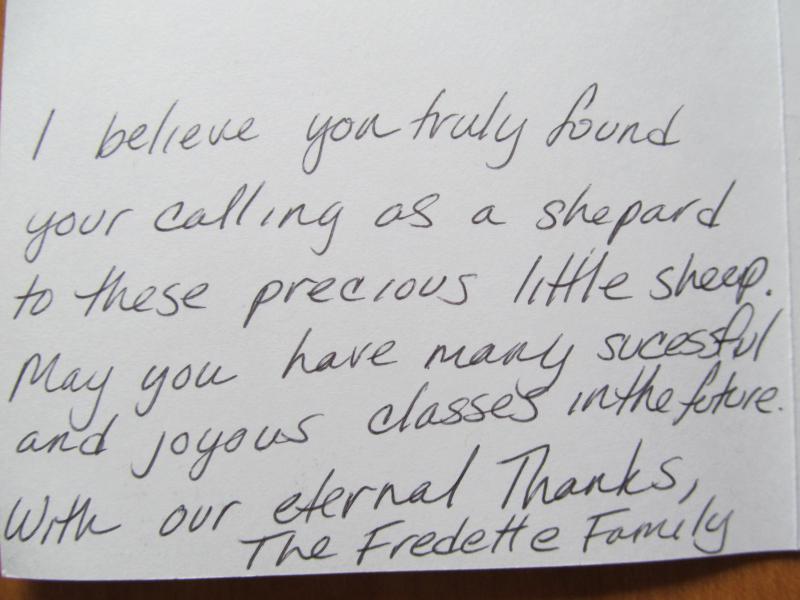 I believe you truly found
your calling as a shepard
to these precious little sheep.
May you have many sucessful
and joyous classes in the future.
With our eternal Thanks,
The Fredette Family